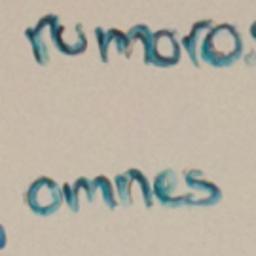 rumoros
omnes